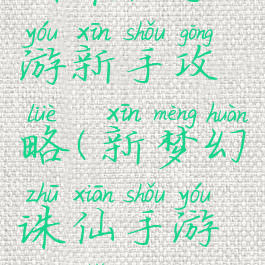 yóu xīn shǒu gōng
游新手攻
lüè xīn mèng huàn
略(新梦幻
zhū xiān shǒu yóu
诛仙手游